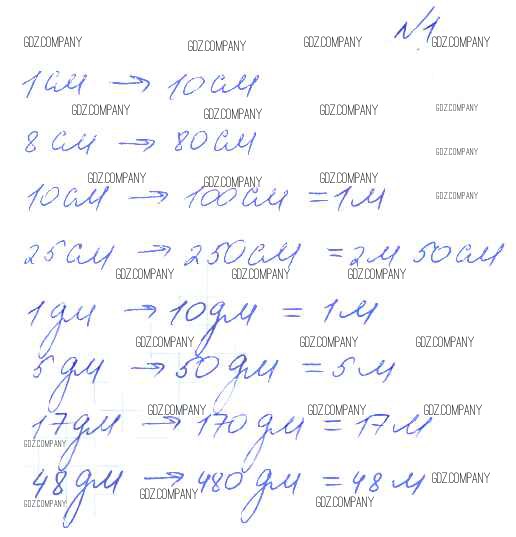 №1
GDZ.COMPANY GDZ.COMPANY GDZ.COMPANY GDZ.COMPANY
1см → 10см
GDZ.COMPANY GDZ.COMPANY GDZ.COMPANY GDZ.COMPANY
8см → 80см
GDZ.COMPANY
GDZ.COMPANY GDZ.COMPANY GDZ.COMPANY
10см → 100см = 1м
GDZ.COMPANY
25см → 250см = 2м 50см
GDZ.COMPANY GDZ.COMPANY GDZ.COMPANY
1дм → 10дм = 1м
GDZ.COMPANY GDZ.COMPANY GDZ.COMPANY
5дм → 50дм = 5м
GDZ.COMPANY GDZ.COMPANY GDZ.COMPANY
17дм → 170дм = 17м
GDZ.COMPANY
48дм → 480дм = 48м
GDZ.COMPANY GDZ.COMPANY
GDZ.COMPANY GDZ.COMPANY